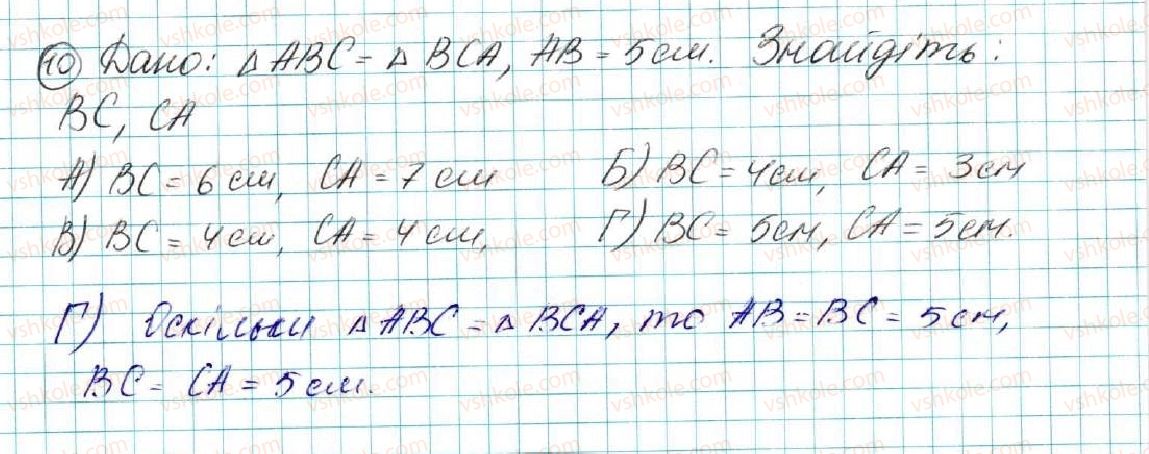 10 Дано: △ABC = △BCA, AB = 5 см. Знайдіть:
BC, CA
А) BC = 6 см, CA = 7 см Б) BC = 4 см, CA = 3 см
В) BC = 4 см, CA = 4 см, Г) BC = 5 см, CA = 5 см.
Г) Оскільки △ABC = △BCA, то AB = BC = 5 см,
BC = CA = 5 см.
vshkole.com